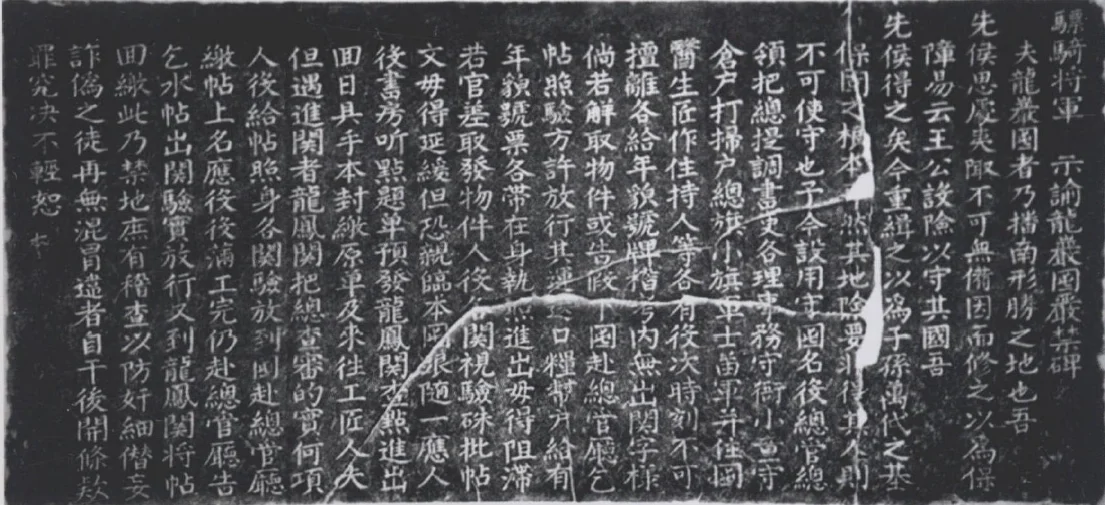 驃騎將軍 示諭龍巖囤嚴禁碑
夫龍巖囤者乃播南形勝之地也吾
先侯思慶夷隙不可無備因而修之以為保
障易云王公設險以守其國吾
先侯得之矣今重緝之以為子孫萬代之基
保囤之根本 然其地險要 得其人則
不可使守也予今設用守囤名役總官總
領把總提調書吏各理事務守衙小 守
倉户打掃户總旗小旗軍士苗軍并住囤
醫生匠作住持人等各有役次時刻不可
擅離各給年貌號牌稽考內無出関字樣
倘若解取物件或告假 囤赴總官廳乞
帖照驗方許放行其 口糧幣方給有
年貌號票各帶在身執照進出毋得阻滯
若官差取發物件人役 関視驗硃批帖
文毋得延緩但恐親臨本囤 隨一應人
後書房听點題單預發龍鳳関查點進出
囬日具手本封繳原單及來往工匠人夫
但遇進関者龍鳳関把總查審的實何項
人役給帖照身各関驗放到囤赴總官廳
繳帖上名應役役滿工完仍赴總官廳告
乞水帖出関驗實放行又到龍鳳関將帖
囬繳此乃禁地庶有稽查以防奸細僭妄
詐偽之徒再無混冒違者自干後開條欵
罪究决不輕恕